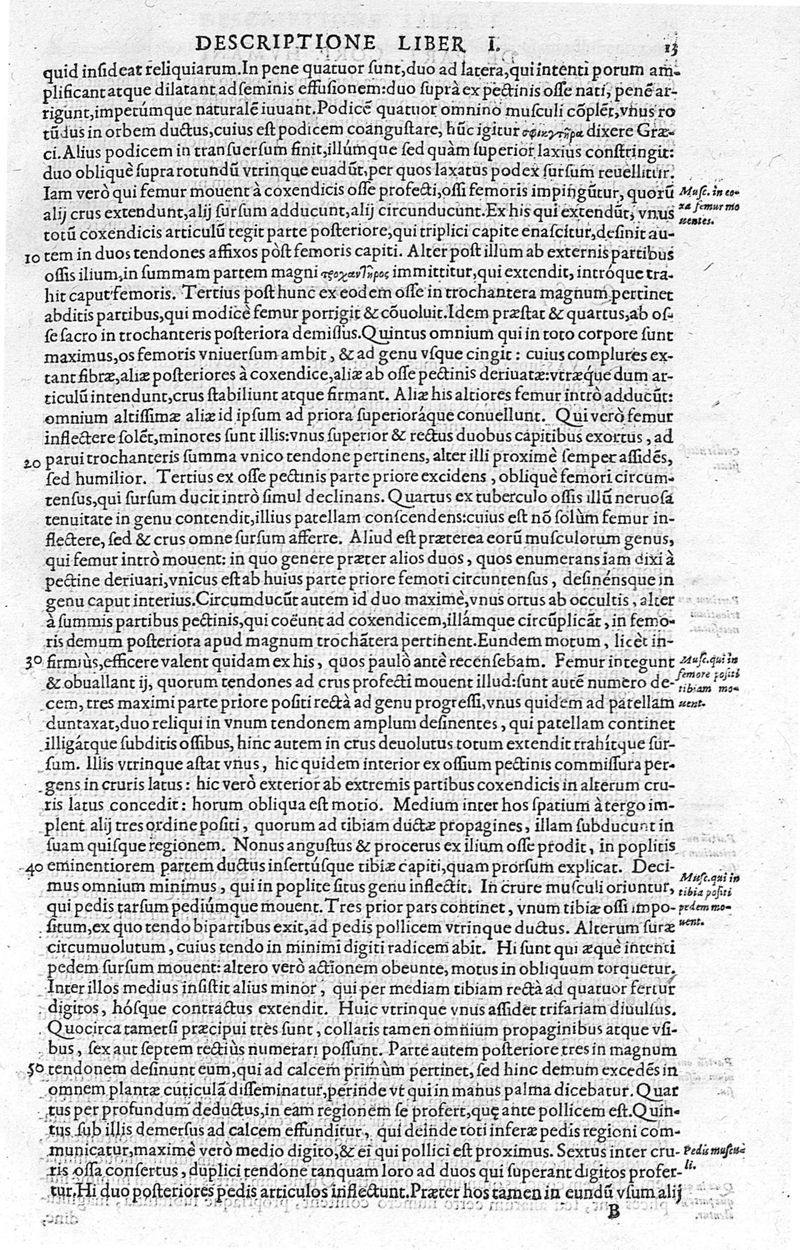 DESCRIPTIONE LIBER I. 13
quid insideat reliquiarum. In pene quatuor sunt, duo ad latera, qui intenti porum am-
plificant atque dilatant ad seminis effusionem: duo suprà ex pectinis osse nati, penẽ ar-
rigunt, impetúmque naturalẽ iuuant. Podicẽ quatuor omnino musculi cõplẽt, vnus ro
tũdus in orbem ductus, cuius est podicem coangustare, hũc igitur σφιγκτῆρα dixere Græ-
ci. Alius podicem in transuersum finit, illúmque sed quàm superior laxius constringit:
duo obliquè supra rotundũ vtrinque euadũt, per quos laxatus podex sursum reuellitur.
Iam verò qui femur mouent à coxendicis osse profecti, ossi femoris impingũtur, quorũ
alij crus extendunt, alij sursum adducunt, alij circunducunt. Ex his qui extendũt, vnus
totũ coxendicis articulũ tegit parte posteriore, qui triplici capite enascitur, desinit au-
10 tem in duos tendones affixos pòst femoris capiti. Alter post illum ab externis partibus
ossis ilium, in summam partem magni τροχαντῆρος immittitur, qui extendit, intróque tra-
hit caput femoris. Tertius post hunc ex eodem osse in trochantera magnum pertinet
abditis partibus, qui modicè femur porrigit & cõuoluit. Idem præstat & quartus, ab os-
se sacro in trochanteris posteriora demissus. Quintus omnium qui in toto corpore sunt
maximus, os femoris vniuersum ambit, & ad genu vsque cingit: cuius complures ex-
tant fibræ, aliæ posteriores à coxendice, aliæ ab osse pectinis deriuatæ: vtræq́ue dum ar-
ticulũ intendunt, crus stabiliunt atque firmant. Aliæ his altiores femur intrò adducũt:
omnium altissimæ aliæ id ipsum ad priora superioráque conuellunt. Qui verò femur
inflectere solẽt, minores sunt illis: vnus superior & rectus duobus capitibus exortus, ad
20 parui trochanteris summa vnico tendone pertinens, alter illi proximè semper assidẽs,
sed humilior. Tertius ex osse pectinis parte priore excidens, obliquè femori circum-
tensus, qui sursum ducit intrò simul declinans. Quartus ex tuberculo ossis iliũ neruosa
tenuitate in genu contendit, illius patellam conscendens: cuius est nõ solùm femur in-
flectere, sed & crus omne sursum afferre. Aliud est præterea eorũ musculorum genus,
qui femur intrò mouent: in quo genere præter alios duos, quos enumerans iam dixi à
pectine deriuari, vnicus est ab huius parte priore femori circuntensus, desinénsque in
genu caput interius. Circumducũt autem id duo maximè, vnus ortus ab occultis, alter
à summis partibus pectinis, qui coëunt ad coxendicem, illámque circũplicãt, in femo-
ris demum posteriora apud magnum trochãtera pertinent. Eundem motum, licèt in-
30 firmiùs, efficere valent quidam ex his, quos paulò antè recensebam. Femur integunt
& obuallant ij, quorum tendones ad crus profecti mouent illud: sunt autẽ numero de-
cem, tres maximi parte priore positi rectà ad genu progressi, vnus quidem ad patellam
duntaxat, duo reliqui in vnum tendonem amplum desinentes, qui patellam continet
illigátque subditis ossibus, hinc autem in crus deuolutus totum extendit trahítque sur-
sum. Illis vtrinque astat vnus, hic quidem interior ex ossium pectinis commissura per-
gens in cruris latus: hic verò exterior ab extremis partibus coxendicis in alterum cru-
ris latus concedit: horum obliqua est motio. Medium inter hos spatium à tergo im-
plent alij tres ordine positi, quorum ad tibiam ductæ propagines, illam subducunt in
suam quisque regionem. Nonus angustus & procerus ex ilium osse prodit, in poplitis
40 eminentiorem partem ductus insertúsque tibiæ capiti, quam prorsum explicat. Deci-
mus omnium minimus, qui in poplite situs genu inflectit. In crure musculi oriuntur,
qui pedis tarsum pediúmque mouent. Tres prior pars continet, vnum tibiæ ossi impo-
situm, ex quo tendo bipartibus exit, ad pedis pollicem vtrinque ductus. Alterum suræ
circumuolutum, cuius tendo in minimi digiti radicem abit. Hi sunt qui æquè intenti
pedem sursum mouent: altero verò actionem obeunte, motus in obliquum torquetur.
Inter illos medius insistit alius minor, qui per mediam tibiam rectà ad quatuor fertur
digitos, hósque contractus extendit. Huic vtrinque vnus assidet trifariam diuulsus.
Quocirca tametsi præcipui tres sunt, collatis tamen omnium propaginibus atque vsi-
bus, sex aut septem rectiùs numerari possunt. Parte autem posteriore tres in magnum
50 tendonem desinunt eum, qui ad calcem primùm pertinet, sed hinc demum excedẽs in
omnem plantæ cuticulã disseminatur, perinde vt qui in manus palma dicebatur. Quar
tus per profundum deductus, in eam regionem se profert, quę ante pollicem est. Quin-
tus sub illis demersus ad calcem effunditur, qui deinde toti inferæ pedis regioni com-
municatur, maximè verò medio digito, & ei qui pollici est proximus. Sextus inter cru-
ris ossa consertus, duplici tendone tanquam loro ad duos qui superant digitos profer-
tur. Hi duo posteriores pedis articulos inflectunt. Præter hos tamen in eundũ vsum alij
B
Musc. in co-
xa femur mo
uentes.
Musc. qui in
femore positi
tibiam mo-
uent.
Musc. qui in
tibia positi
pedem mo-
uent.
Pedis muscu
li.